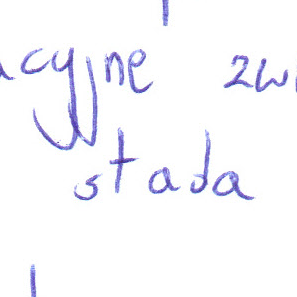 acyjne zwi
stada